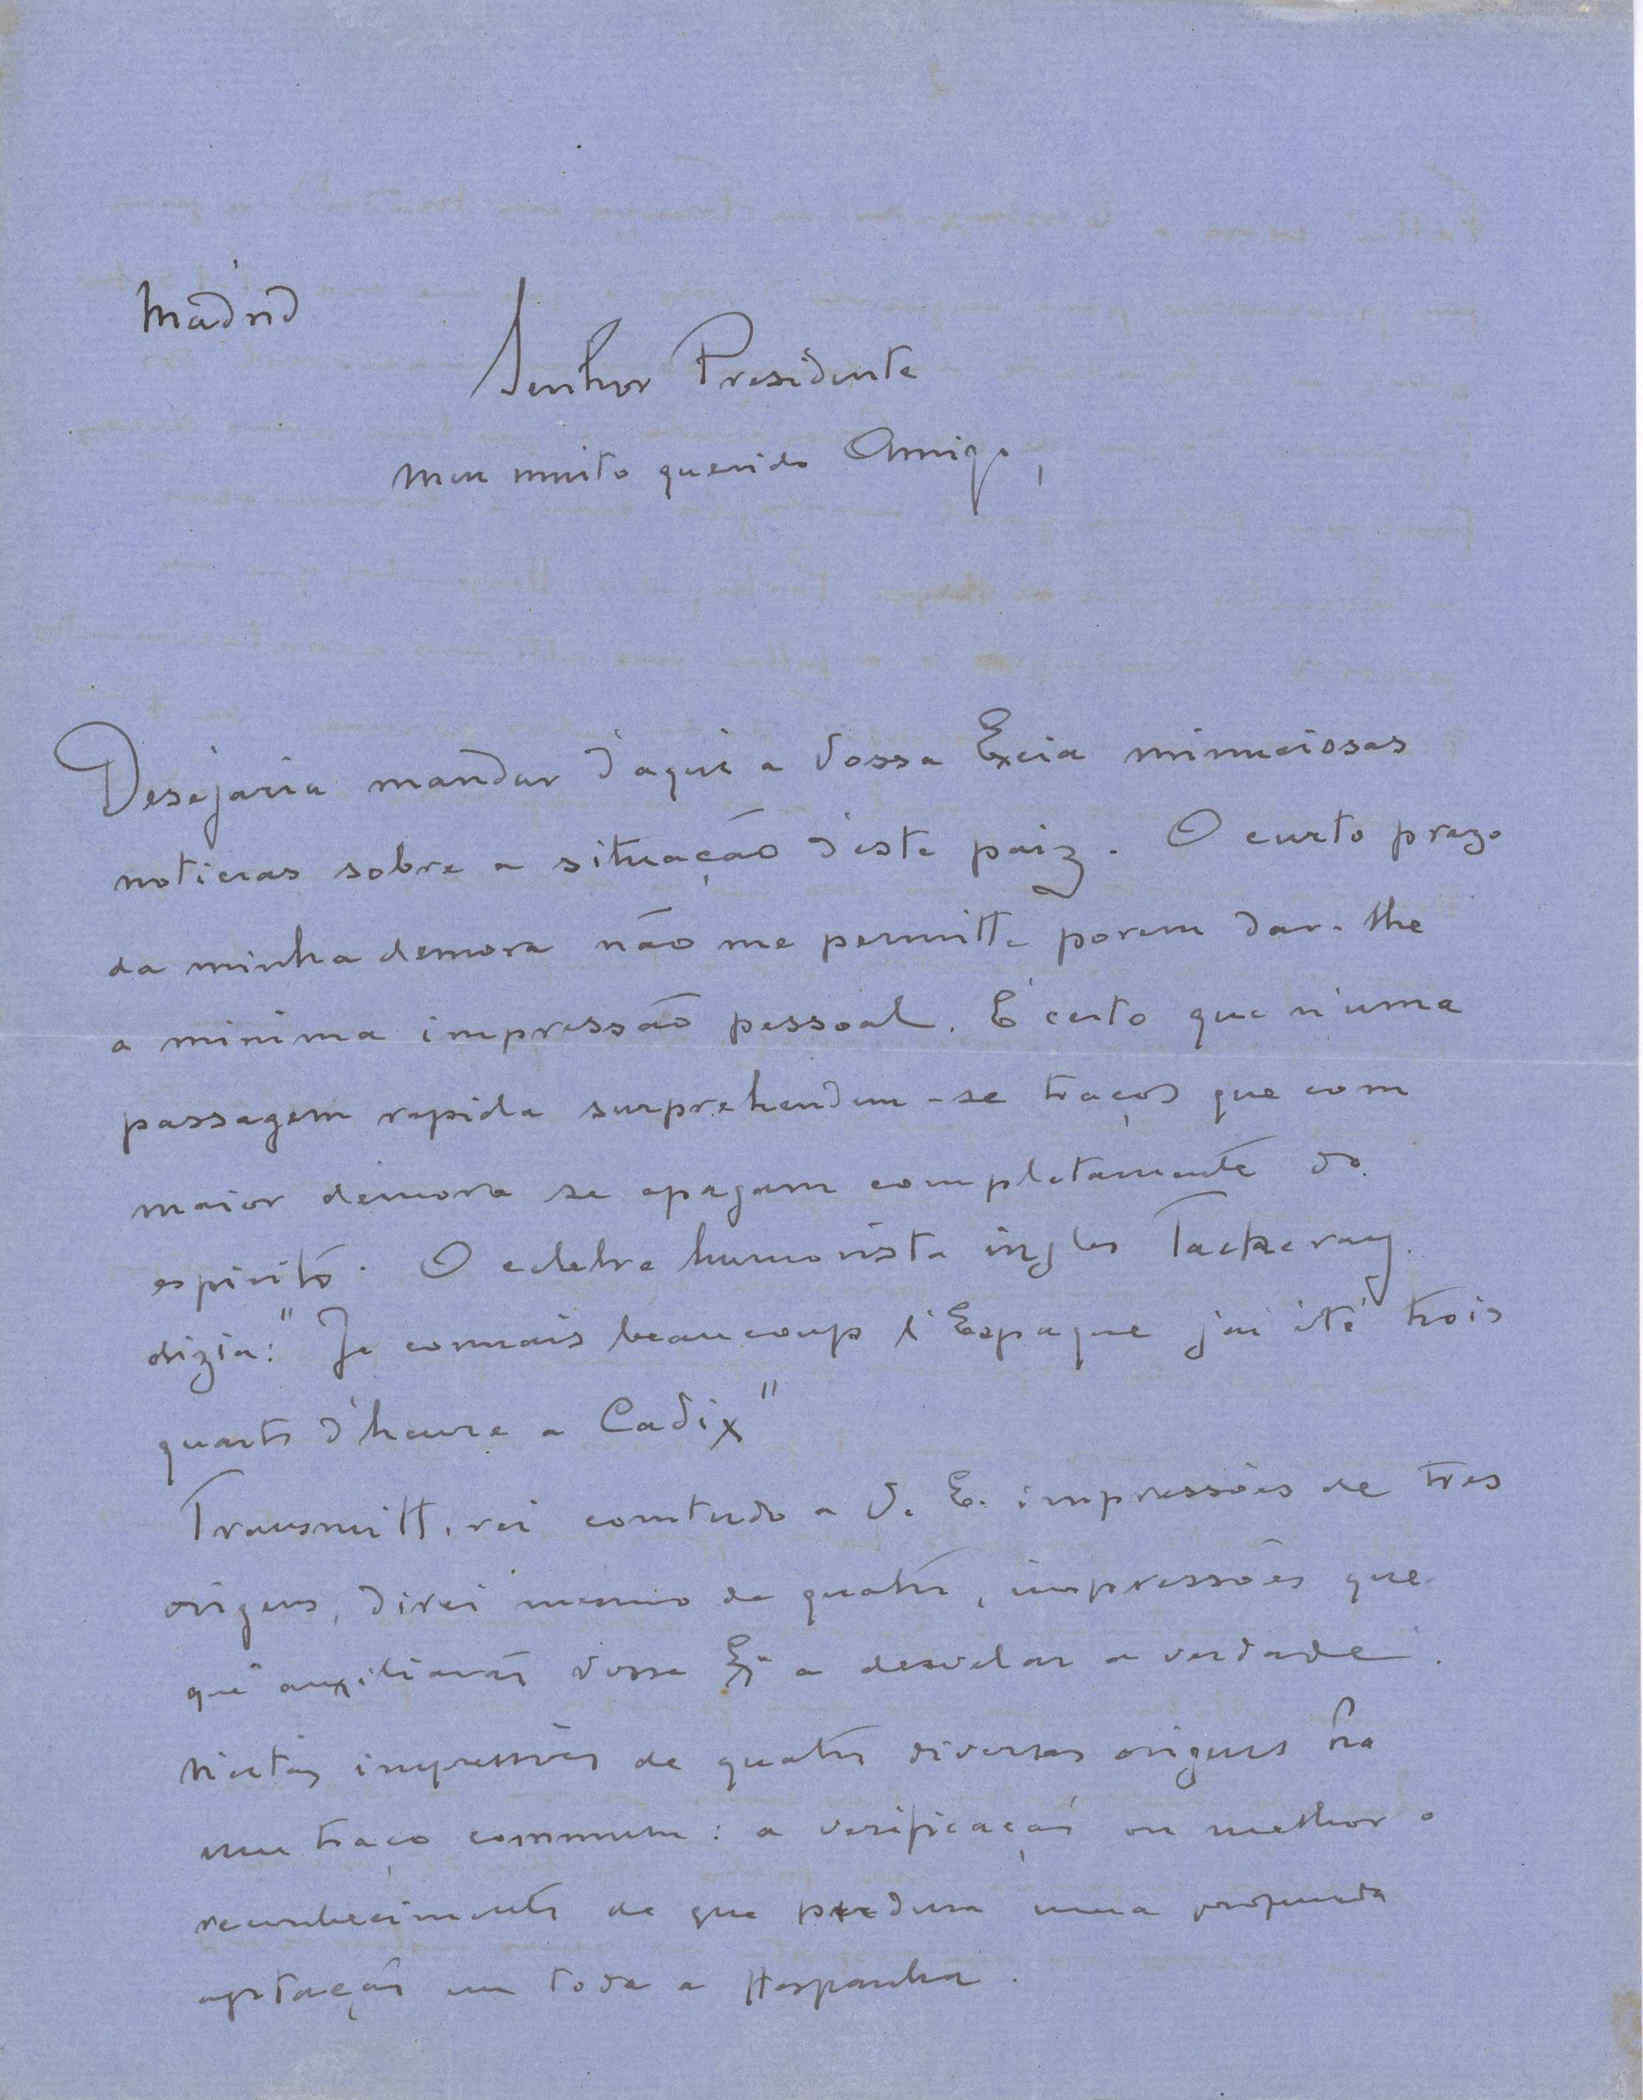 Madrid
Senhor Presidente
Meu muito querido Amigo,
Desejaria mandar d'aqui a Vossa Excia minuciosas
noticias sobre a situação d'este paiz. O curto prazo
da minha demora não me permitte porem dar-lhe
a minima impressão pessoal. É certo que n'uma
passagem rapida surprehendem-se traços que com
maior demora se apagam completamente do
espirito. O celebre humorista ingles Tackeray
dizia: "Je connais beaucoup l'Espagne j'ai été trois
quarts d'heure a Cadix"
Transmitterei comtudo a V. E. impressões de tres
origens, direi mesmo de quatro, impressões que
que auxiliarão Vossa Exª a desvelar a verdade.
N'estas impressões de quatro diversas origens ha
um traço commum: a verificação ou melhor o
reconhecimento de que perdura uma profunda
agitação em toda a Hespanha.